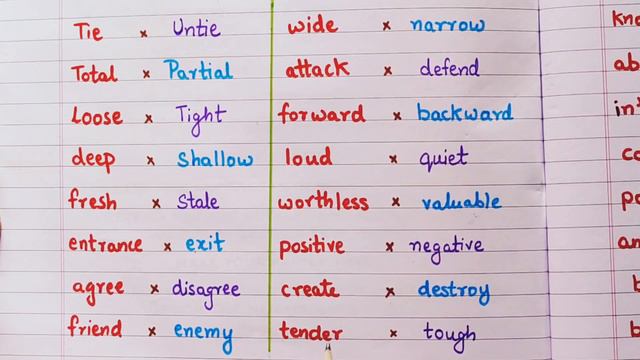 Tie × Untie
Total × Partial
Loose × Tight
deep × Shallow
fresh × Stale
entrance × exit
agree × disagree
friend × enemy
wide × narrow
attack × defend
forward × backward
loud × quiet
worthless × valuable
positive × negative
create × destroy
tender × tough